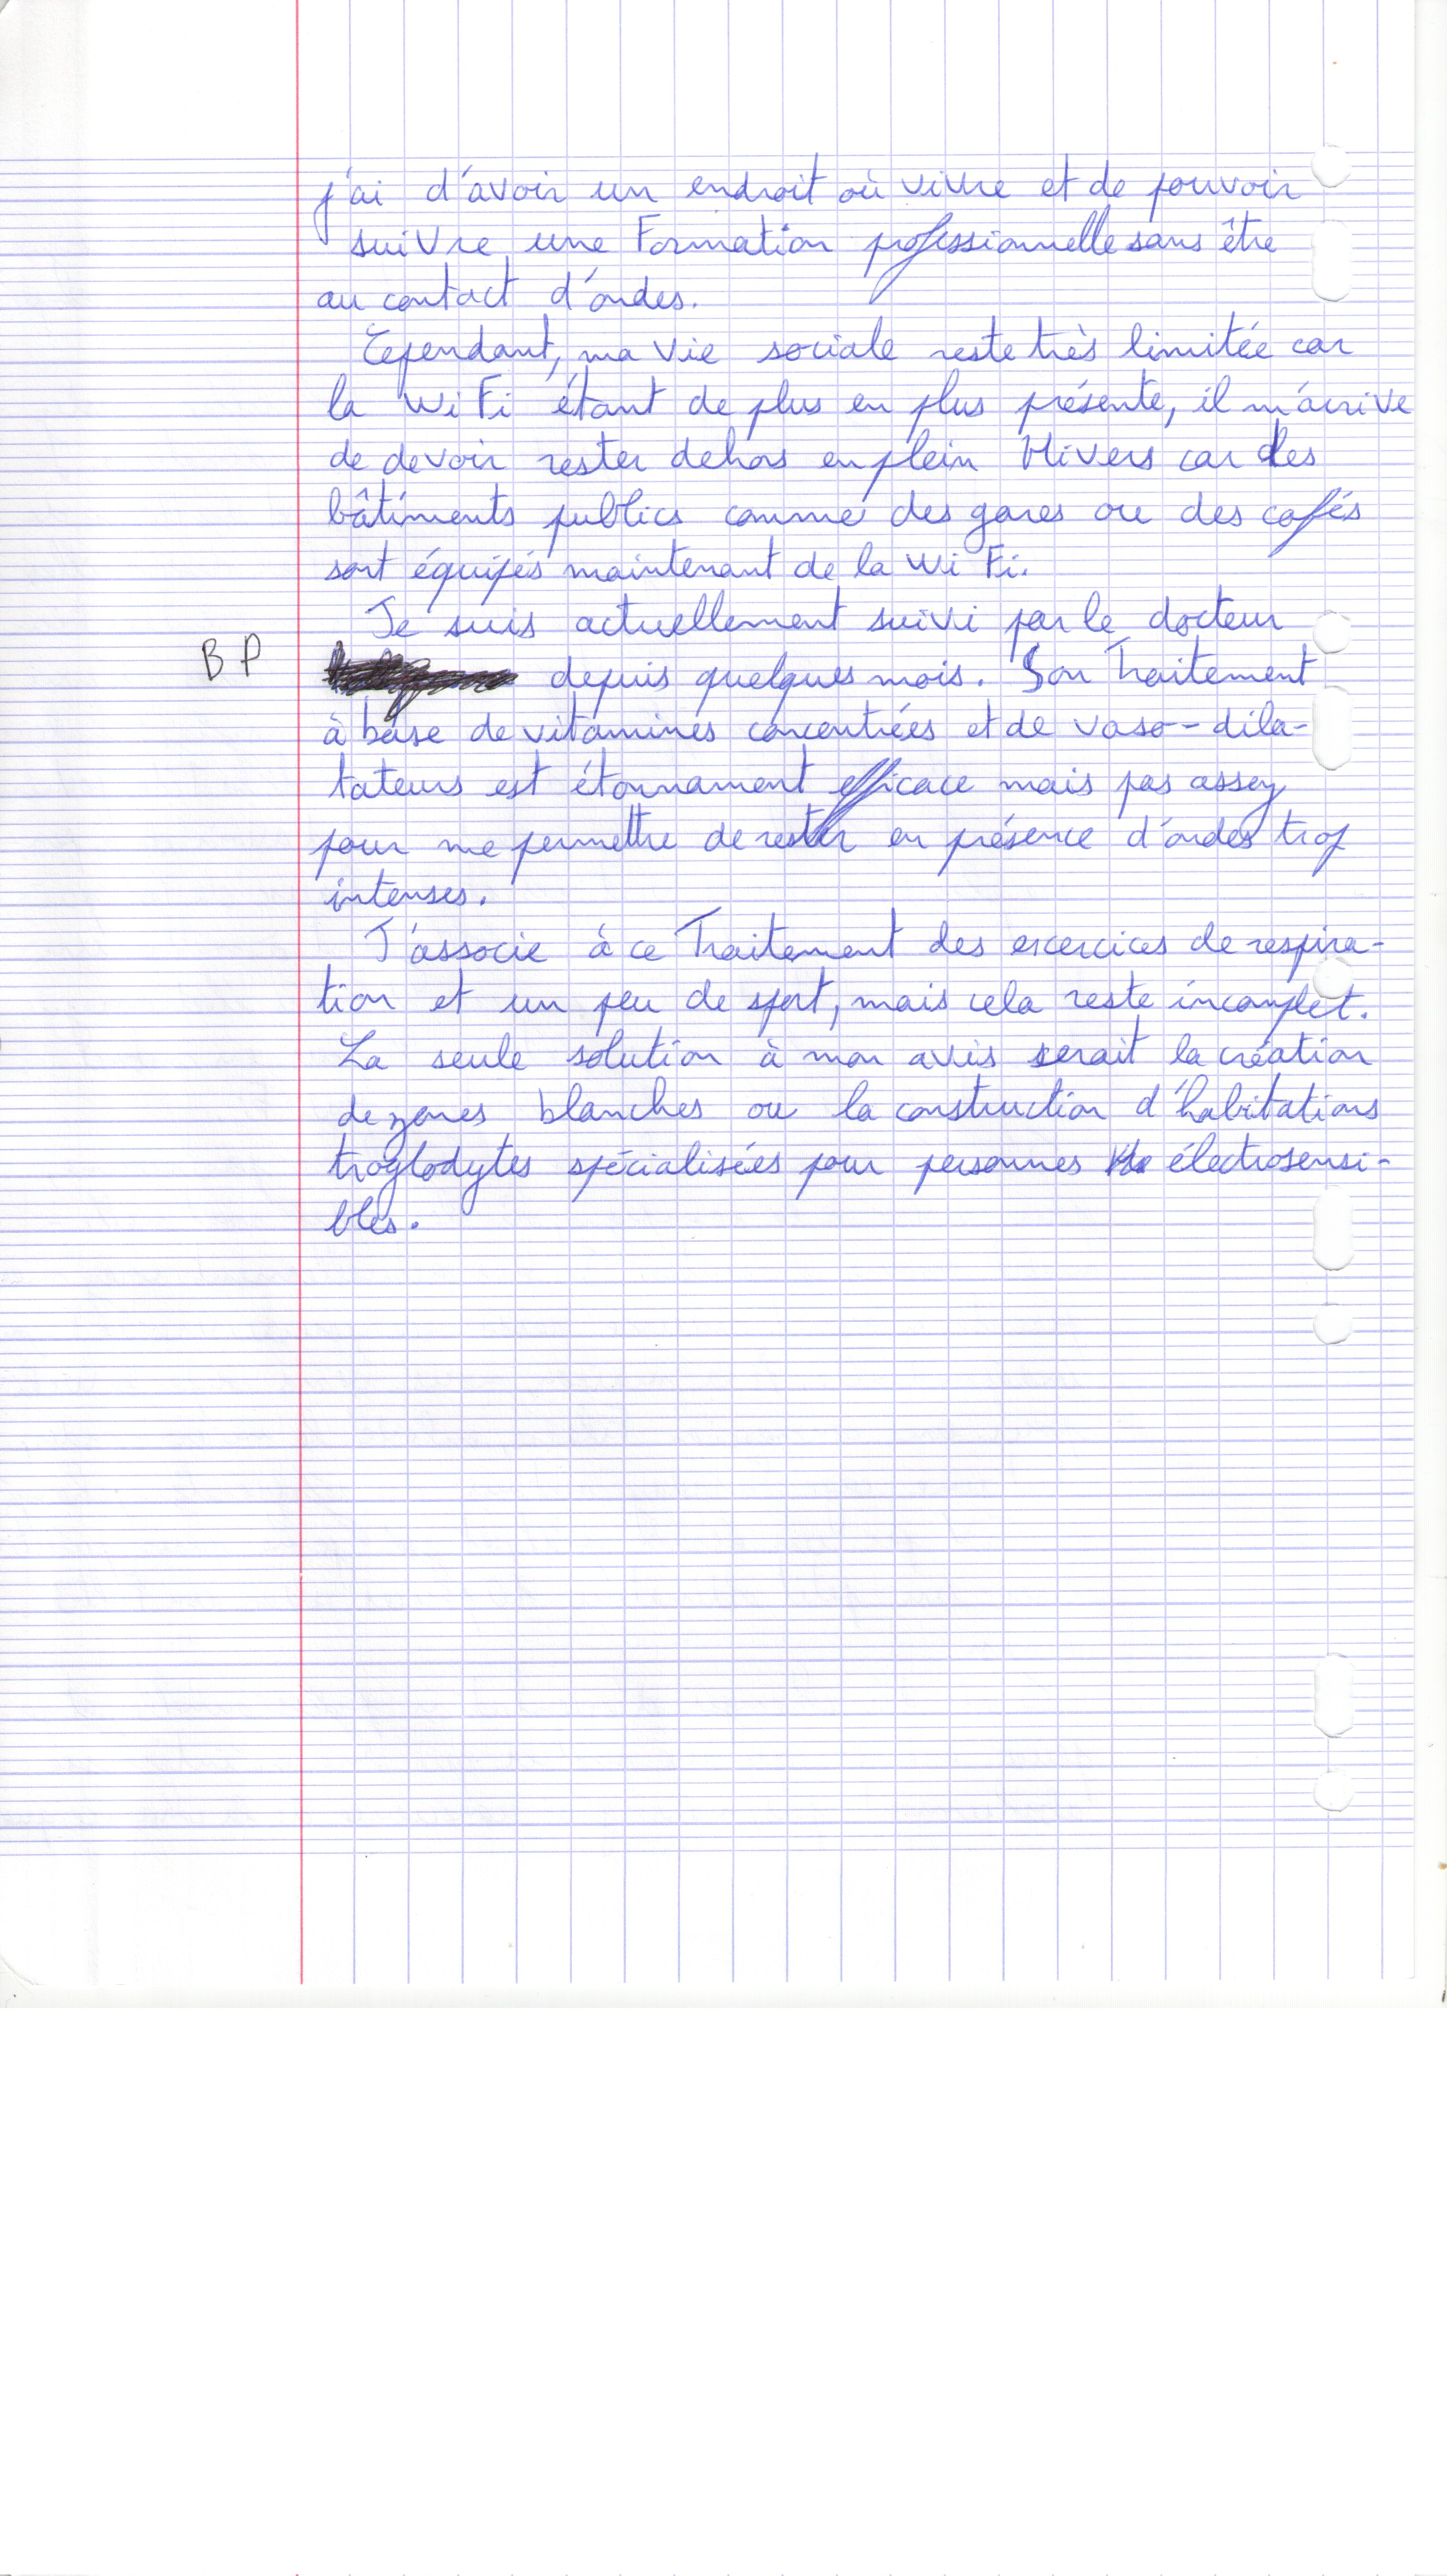 j'ai d'avoir un endroit où vivre et de pouvoir
suivre une Formation professionnelle sans être
au contact d'ondes.
Cependant, ma vie sociale reste très limitée car
la WiFi étant de plus en plus présente, il m'arrive
de devoir rester dehors en plein Hivers car des
bâtiments publics comme des gares ou des cafés
sont équipés maintenant de la WiFi.
Je suis actuellement suivi par le docteur
BP depuis quelques mois. Son Traitement
à base de vitamines concentrées et de vaso-dila-
tateurs est étonnament efficace mais pas assez
pour me permettre de rester en présence d'ondes trop
intenses.
J'associe à ce Traitement des excercices de respira-
tion et un peu de sport, mais cela reste incomplet.
La seule solution à mon avis serait la création
de zones blanches ou la construction d'habitations
troglodytes spécialisées pour personnes électrosensi-
bles.